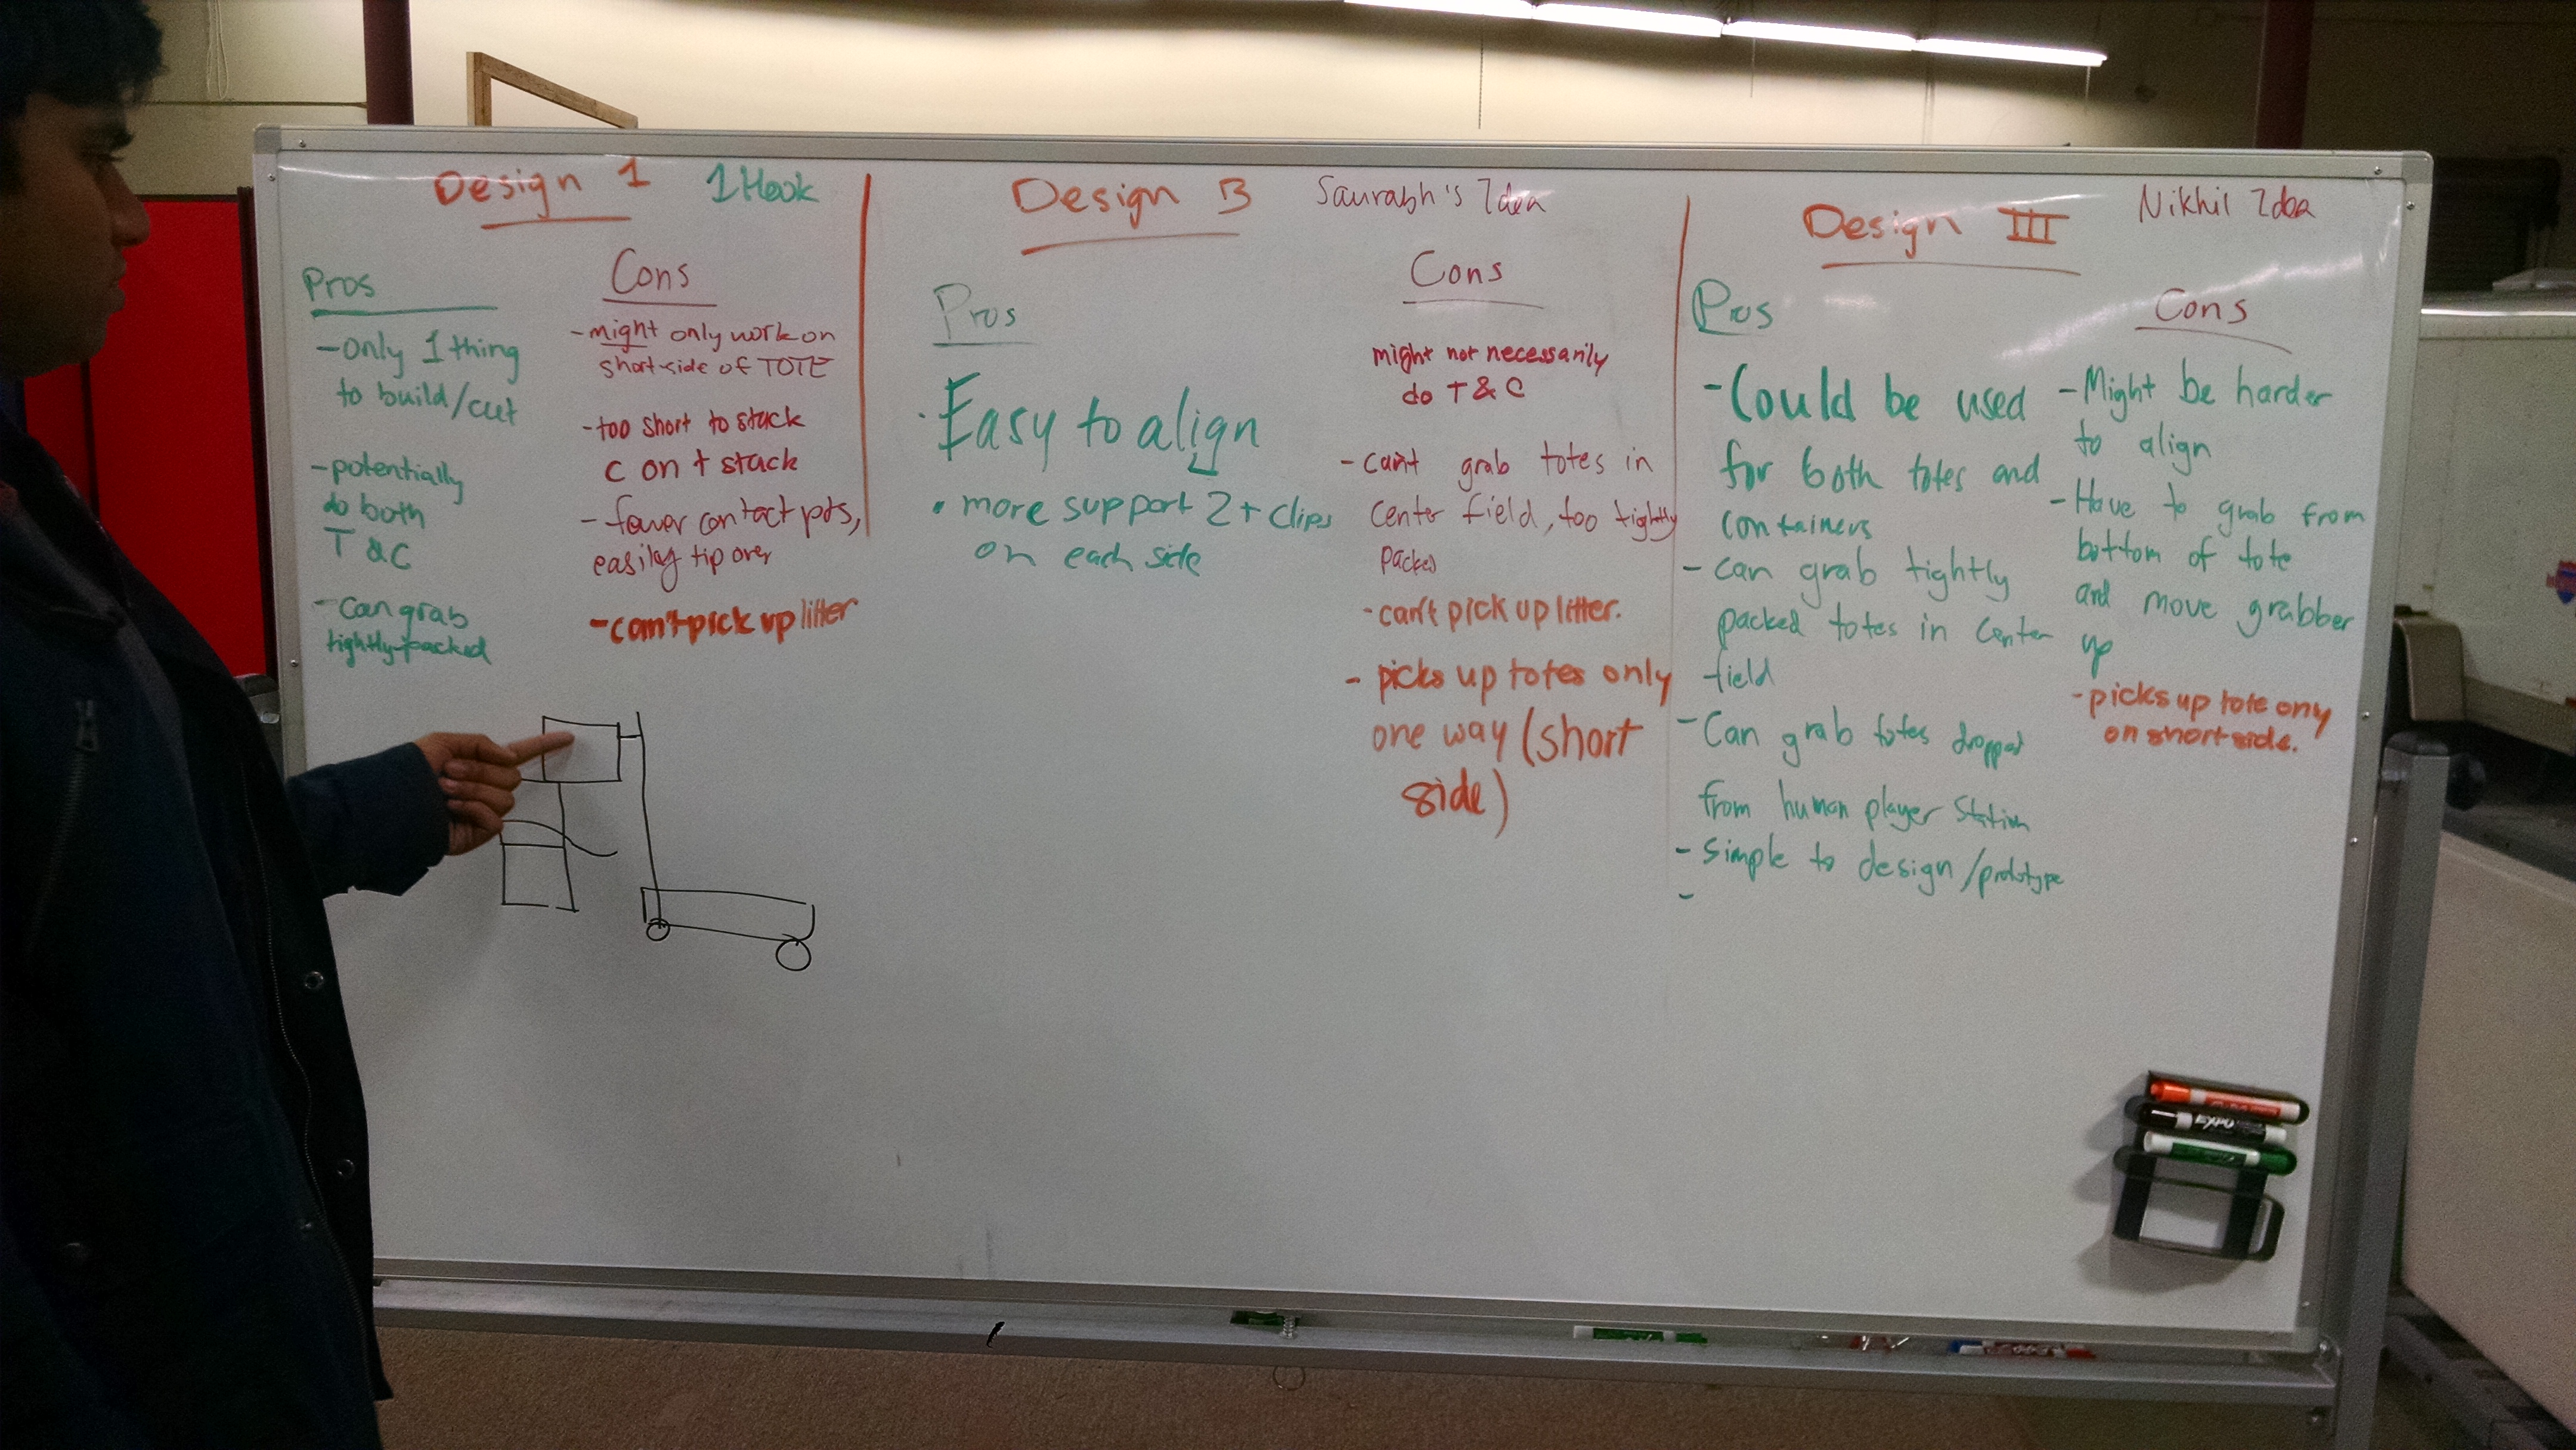 Design 1 1 Hook
Pros
-Only 1 thing
to build/cut
-potentially
do both
T & C
-Can grab
tightly-packed
Cons
-might only work on
short-side of TOTE
-too short to stack
C on t stack
-fewer contact pts,
easily tip over
-can't pick up litter
Design B Saurabh's Idea
Pros
· Easy to align
• more support 2+ clips
on each side
Cons
might not necessarily
do T & C
- can't grab totes in
center field, too tightly
packed
-can't pick up litter.
- picks up totes only
one way (short
side)
Design III Nikhil Idea
Pros
-Could be used
for both totes and
containers
- can grab tightly
packed totes in center
field
- Can grab totes dropped
from human player station
- Simple to design/prototype
-
Cons
-Might be harder
to align
-Have to grab from
bottom of tote
and move grabber
up
-picks up tote ony
on short side.
EXPO